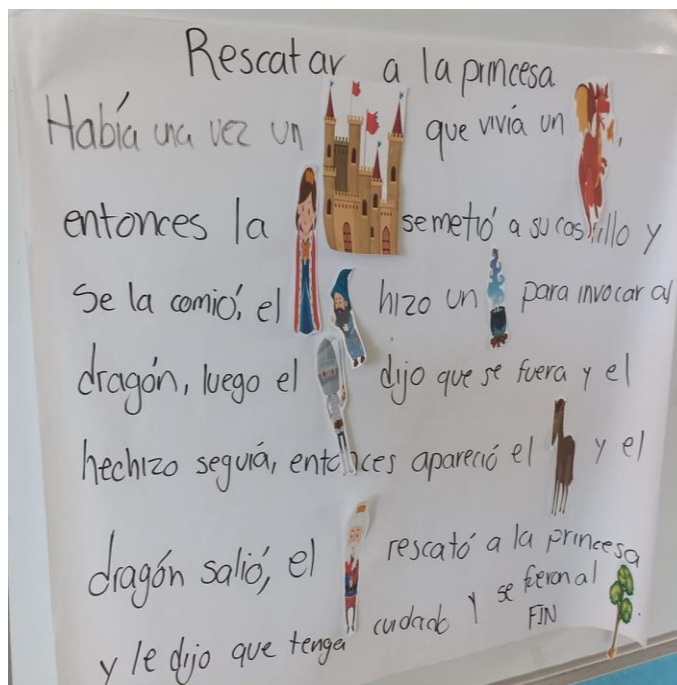 Rescatar a la princesa
Había una vez un que vivía un ,
entonces la se metió a su castillo y
se la comió, el hizo un para invocar al
dragón, luego el dijo que se fuera y el
hechizo seguiá, entonces apareció el y el
dragón salió, el rescató a la princesa
y le dijo que tenga cuidado y se fieron al
FIN